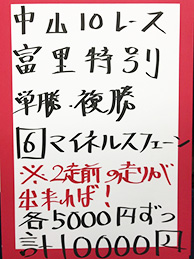 中山10レース
富里特別
単勝・複勝
6 マイネルスフェーン
※2走前の走りが
出来れば!
各5000円ずつ
計10000円